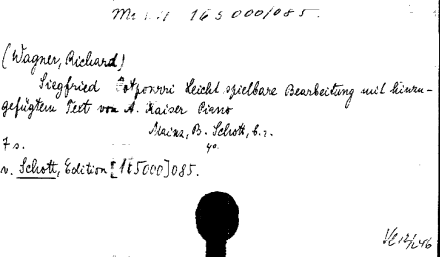 165000/085.
(Wagner, Richard)
Siegfried Potpourri Leicht spielbare Bearbeitung mit hinzu-
gefügtem Text von A. Kaiser Piano
Mainz, B. Schott, o.J.
7 s. 4o.
v. Schott, Edition [165000]085.